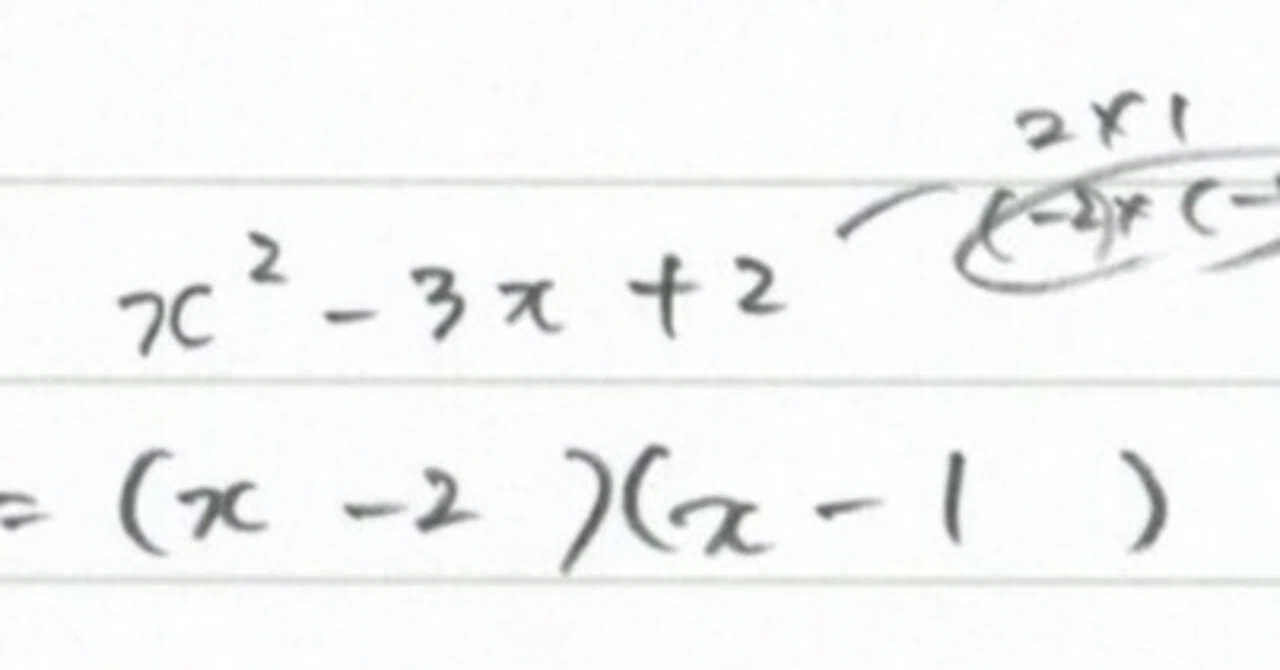 2×1
(-2)×(-
x² - 3x + 2
= (x - 2)(x - 1)